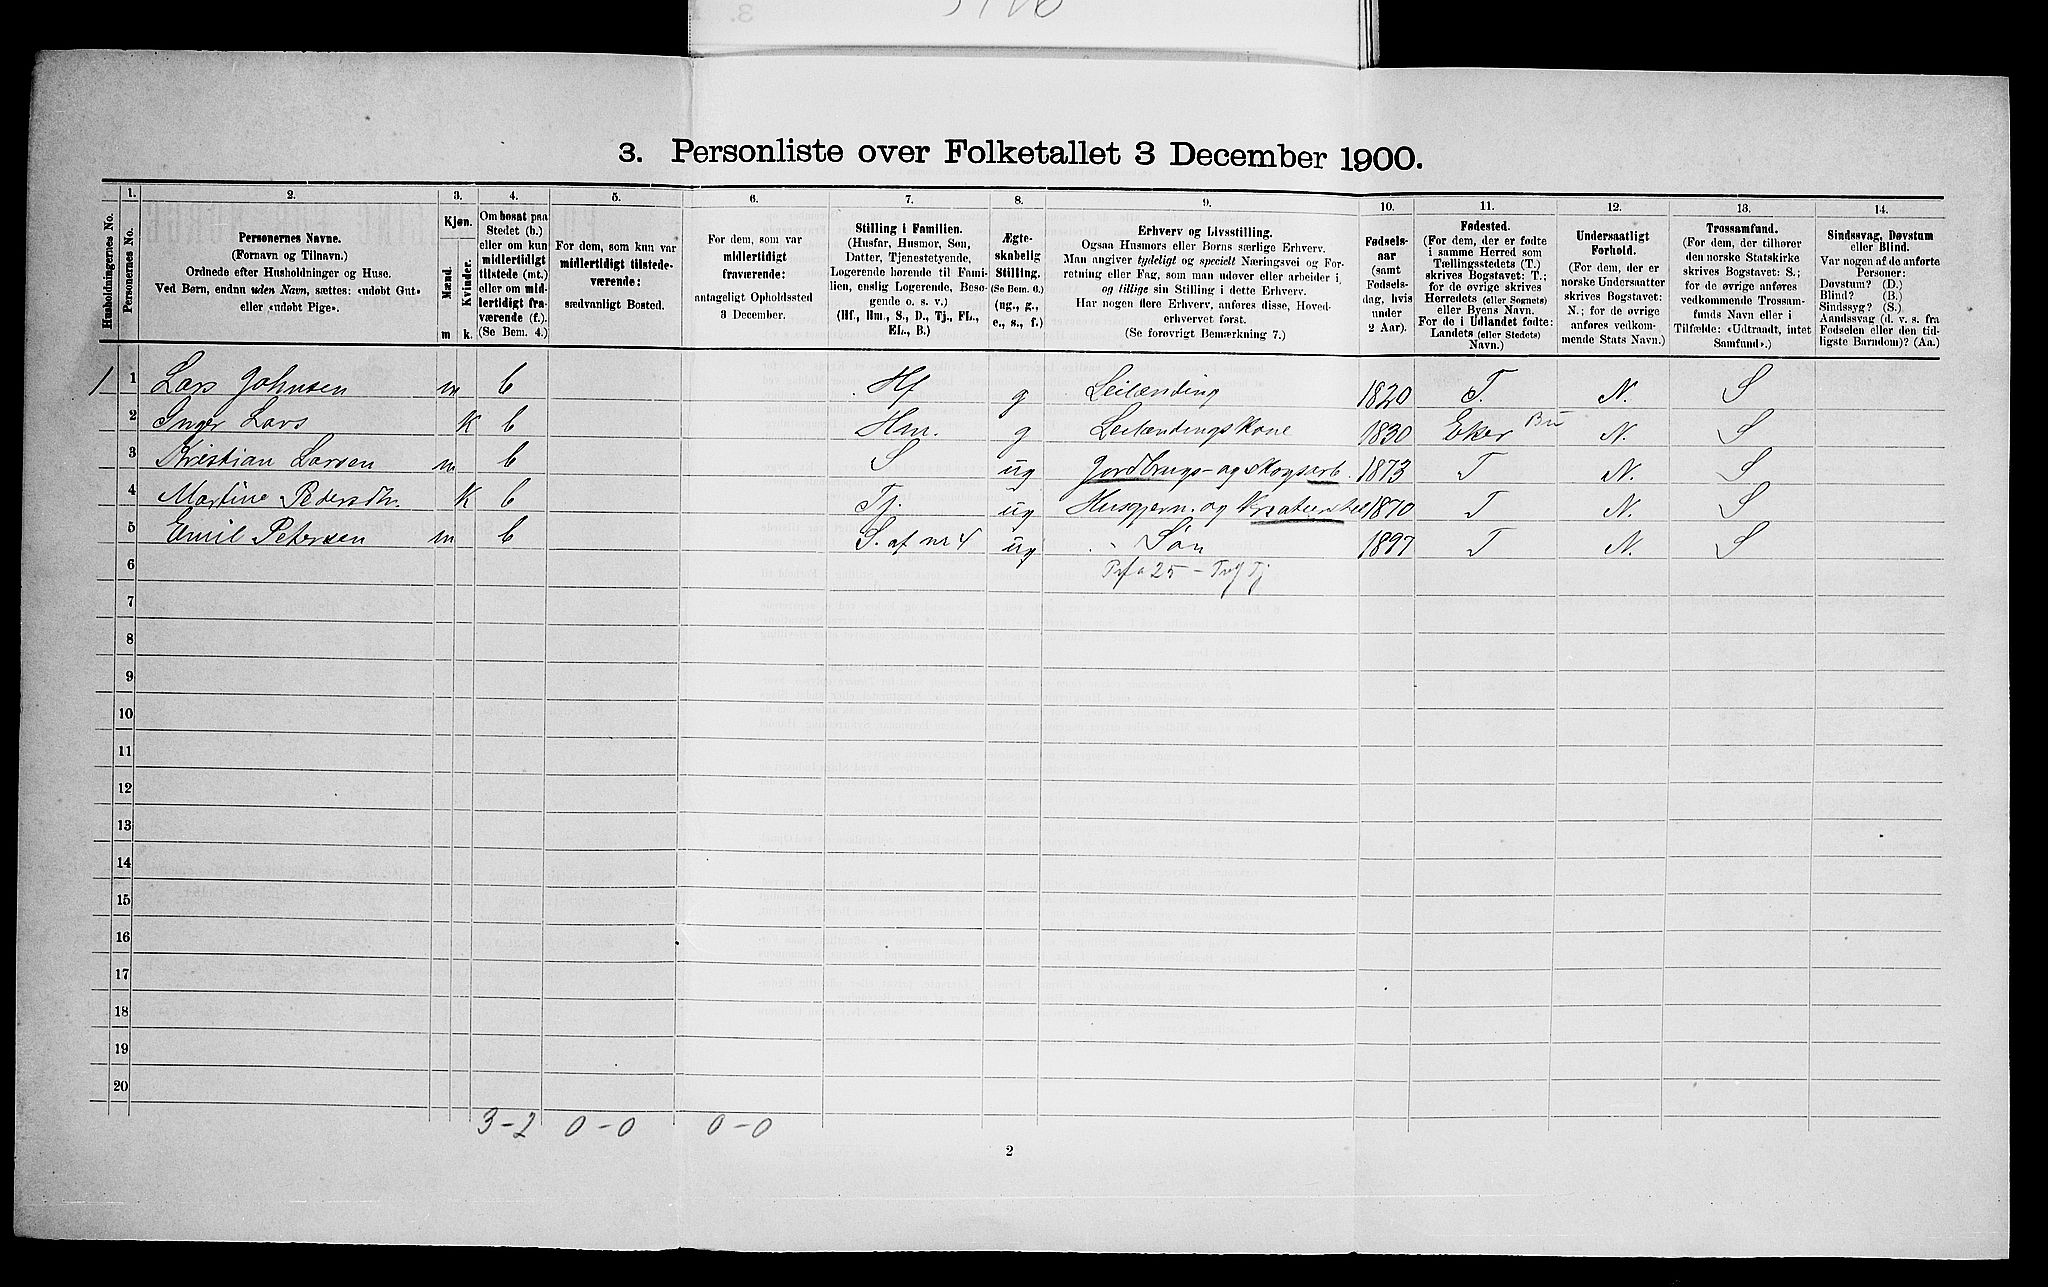 3. Personliste over Folketallet 3 December 1900.
Husholdningernes No.
1.
Personernes No.
2.
Personernes Navne.
(Fornavn og Tilnavn.)
Ordnede efter Husholdninger og Huse.
Ved Børn, endnu uden Navn, sættes: «udøbt Gut»
eller «udøbt Pige».
3.
Kjøn.
Mænd.
Kvinder.
m k.
4.
Om bosat paa
Stedet (b.)
eller om kun
midlertidigt
tilstede (mt.)
eller om mid-
lertidigt fra-
værende (f.)
(Se Bem. 4.)
5.
For dem, som kun var
midlertidigt tilstede-
værende:
sædvanligt Bosted.
6.
For dem, som var
midlertidigt
fraværende:
antageligt Opholdssted
3 December.
7.
Stilling i Familien.
(Husfar, Husmor, Søn,
Datter, Tjenestetyende,
Logerende hørende til Fami-
lien, enslig Logerende, Besø-
gende o. s. v.)
(Hf., Hm., S., D., Tj., FL.,
EL., B.)
8.
Ægte-
skabelig
Stilling.
(Se Bem. 6.)
(ug., g.,
e., s., f.)
9.
Erhverv og Livsstilling.
Ogsaa Husmors eller Børns særlige Erhverv.
Man angiver tydeligt og specielt Næringsvei og For-
retning eller Fag, som man udøver eller arbeider i,
og tillige sin Stilling i dette Erhverv.
Har nogen flere Erhverv, anføres disse, Hoved-
erhvervet først.
(Se forøvrigt Bemærkning 7.)
10.
Fødsels-
aar
(samt
Fødsels-
dag, hvis
under
2 Aar).
11.
Fødested.
(For dem, der er fødte
i samme Herred som
Tællingsstedets (T.)
skrives Bogstavet: T.;
for de øvrige skrives
Herredets (eller Sognets)
eller Byens Navn.
For de i Udlandet fødte:
Landets (eller Stedets)
Navn.)
12.
Undersaatligt
Forhold.
(For dem, der er
norske Undersaatter
skrives Bogstavet:
N.; for de øvrige
anføres vedkom-
mende Stats Navn.)
13.
Trossamfund.
(For dem, der tilhører
den norske Statskirke
skrives Bogstavet: S.;
for de øvrige anføres
vedkommende Trossam-
funds Navn eller i
Tilfælde: «Udtraadt, intet
Samfund».)
14.
Sindssvag, Døvstum
eller Blind.
Var nogen af de anførte
Personer:
Døvstum? (D.)
Blind? (B.)
Sindssyg? (S.)
Aandssvag (d. v. s. fra
Fødselen eller den tid-
ligste Barndom)? (Aa.)
1 1 Lars Johnsen m b Hf g Leilænding 1820 T. N. S
2 Inger Lars K b Hm. g Leilændingskone 1830 Eker Bu N. S
3 Kristian Larsen m b S ug Jordbrugs- og skogsarb. 1873 T N. S
4 Martine Pedersdtr. K b Tj. ug Husgjern. og Kreaturstel 1870 T N. S
5 Emil Petersen m b S. af nr 4 ug Søn 1897 T N. S
6
7
8
9
10
11
12
13
14
15
16
17
18
19
20
3-2 0-0 0-0
2